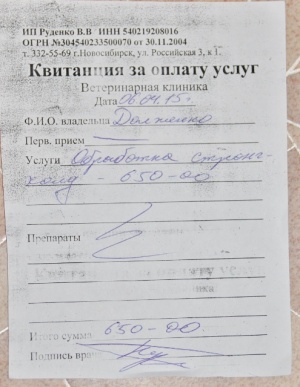 ИП Руденко В.В ИНН 540219208016
ОГРН №304540233500070 от 30.11.2004
т. 332-55-69 г.Новосибирск, ул. Российская 3, к 1.
Квитанция за оплату услуг
Ветеринарная клиника
Дата 06.04.15г.
Ф.И.О. владельца Долженко
Перв. прием
Услуги Обработка стронг-
холд - 650-00
Препараты
Итого сумма 650-00.
Подпись врача